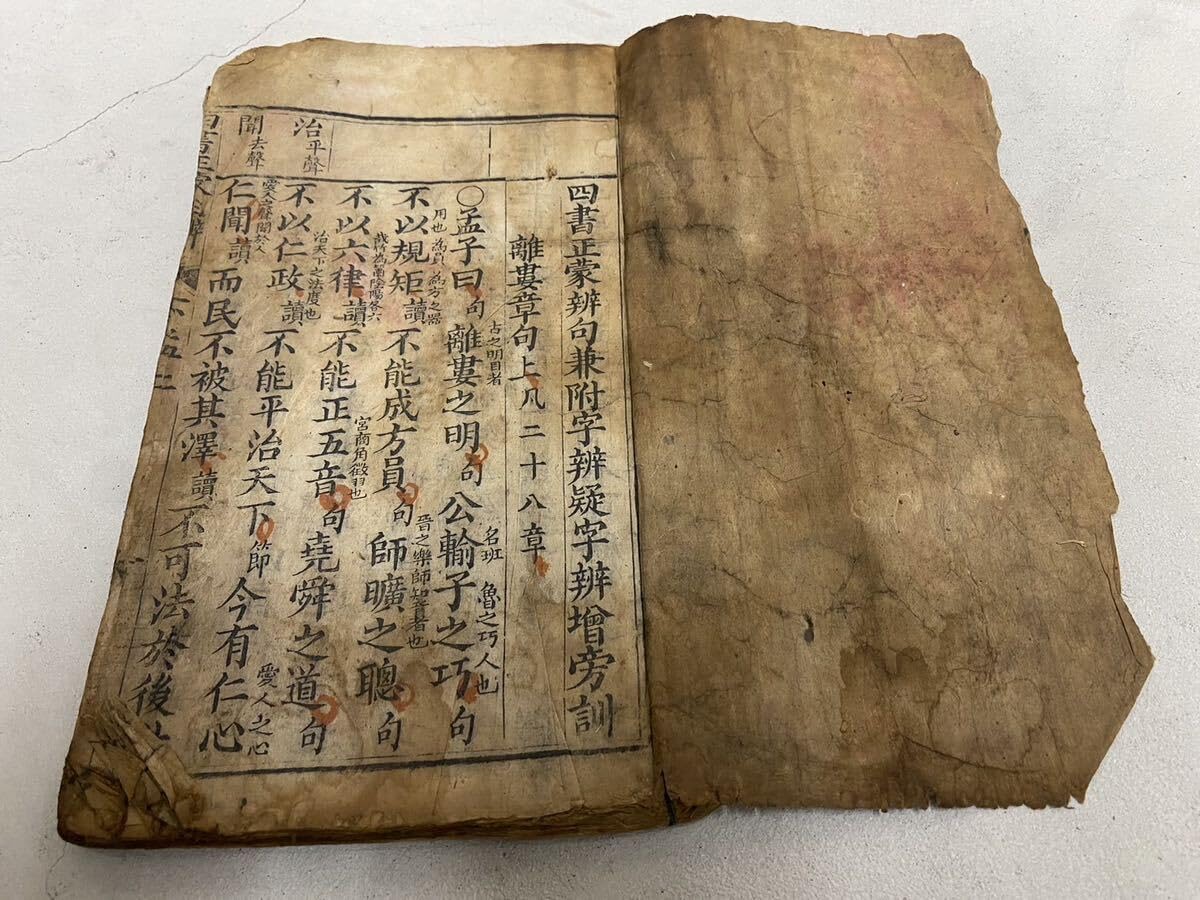 四書正蒙辨句兼附字辨疑字辨增旁訓
離婁章句上凡二十八章
古之明目者
名班 魯之巧人也
〇孟子曰句離婁之明句公輸子之巧句
用也 為員 為方之器
晉之樂師知音者也
不以規矩讀不能成方員句師曠之聰句
陰陽各六
宮商角徵羽也
不以六律讀不能正五音句堯舜之道句
治天下之法度也
不以仁政讀不能平治天下節今有仁心
愛人之心
仁聞讀而民不被其澤讀不可法於後
治平聲
聞去聲